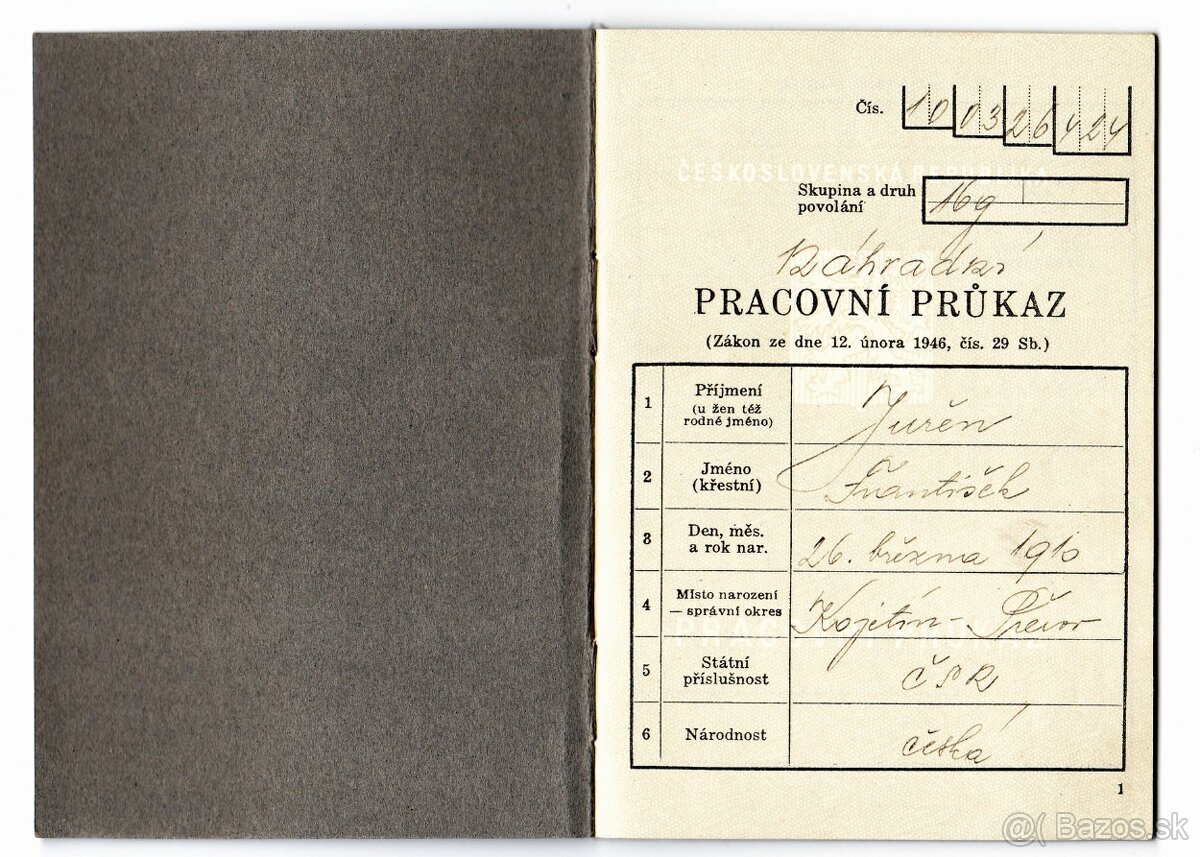 Čís. 10 03 26 424
ČESKOSLOVENSKÁ REPUBLIKA
Skupina a druh
povolání 16g
Náhradní
PRACOVNÍ PRŮKAZ
(Zákon ze dne 12. února 1946, čís. 29 Sb.)
1 Příjmení
(u žen též
rodné jméno) Juřěn
2 Jméno
(křestní) František
3 Den, měs.
a rok nar. 26. března 1910
4 Místo narození
— správní okres Kojetín - Přerov
PRACOVNÍ PRŮKAZ
5 Státní
příslušnost ČSR
6 Národnost česká
1
@( Bazos.sk